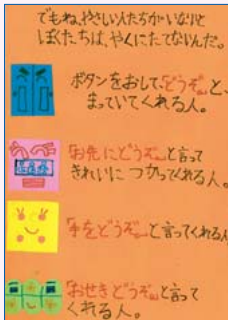 でもね、やさしい人たちがいないと
ぼくたちは、やくにたてないんだ。
ボタンをおして、「どうぞ。」と、
まっていてくれる人。
「お先にどうぞ。」と言って
きれいに つかってくれる人。
「手をどうぞ。」と言ってくれる人
「おせきどうぞ。」と言って
くれる人。